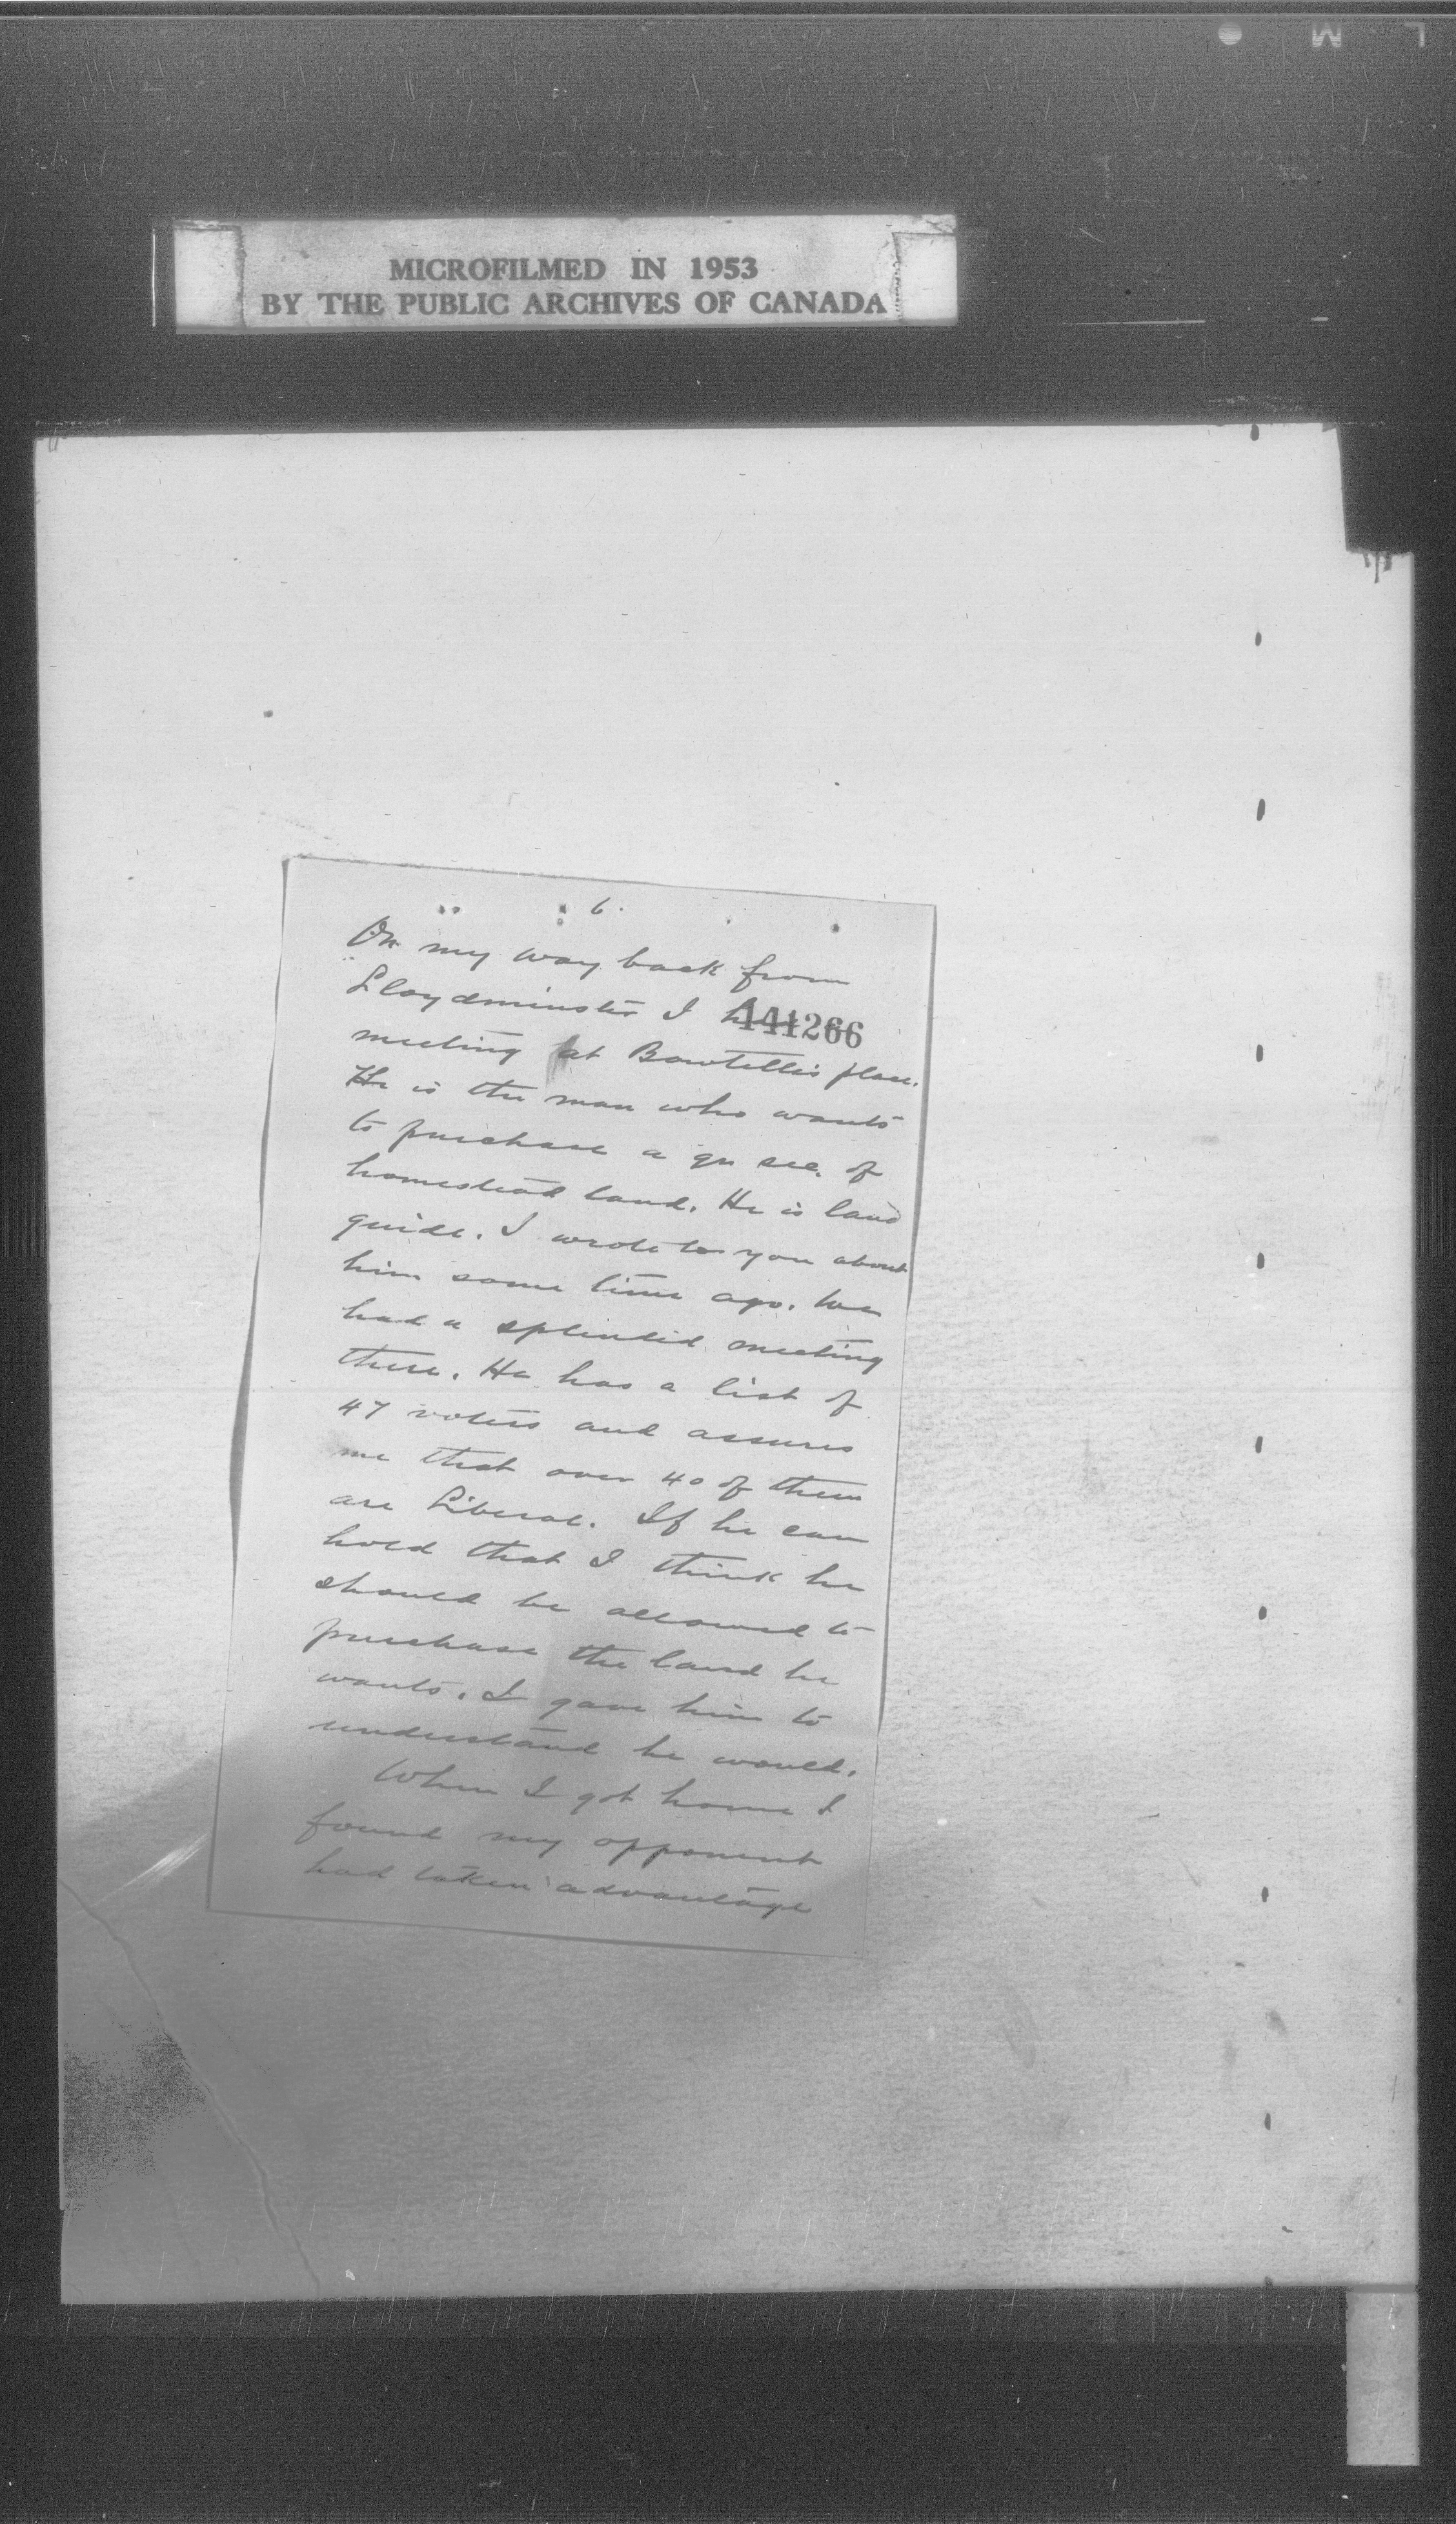 MICROFILMED IN 1953
BY THE PUBLIC ARCHIVES OF CANADA
6.
On my way back from
Lloydminster I
441266
meeting at Bowtell's place.
He is the man who wants
to purchase a qu sec. of
homestead land. He is land
guide. I wrote to you about
him some time ago. We
had a splendid meeting
there. He has a list of
47 voters and assures
me that over 40 of them
are Liberal. If he can
hold that I think he
should be allowed to
purchase the land he
wants. I gave him to
understand he would.
When I got home I
found my opponent
had taken advantage